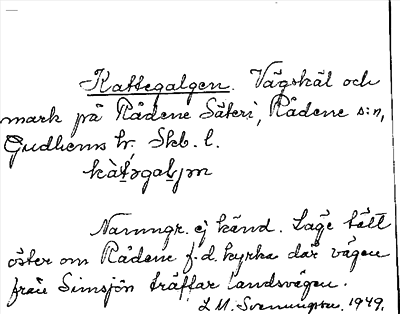 Kattegalgen. Vägskäl och
mark på Rådene Säteri, Rådene s:n,
Gudhems hr. Skb. l.
kàt̯əgal̯jən
Namngr. ej känd. Läge tätt
öster om Rådene f.d. kyrka där vägen
från Simsjön träffar landsvägen.
L M. Svenungsson. 1949.